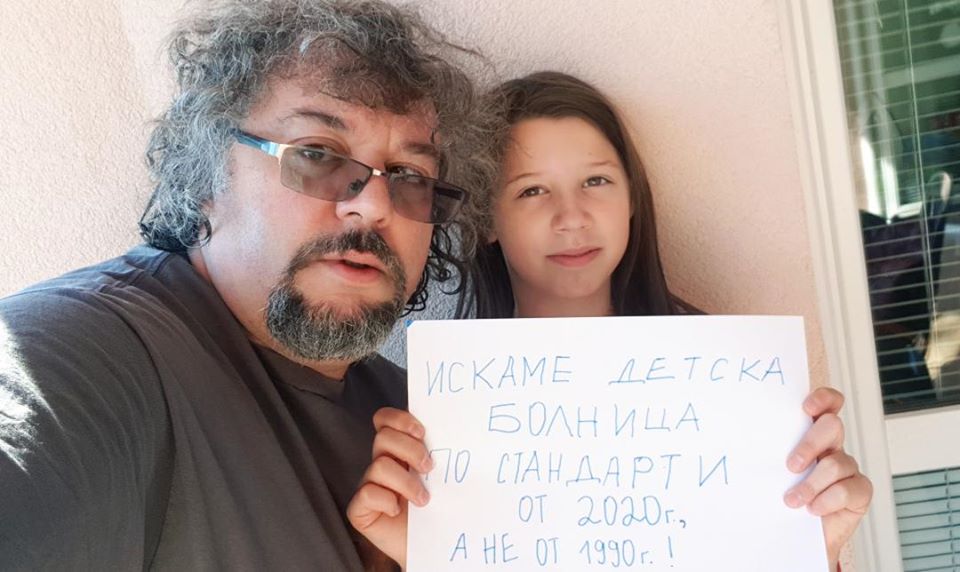 ИСКАМЕ ДЕТСКА
БОЛНИЦА
ПО СТАНДАРТИ
ОТ 2020г.,
А НЕ ОТ 1990г.!